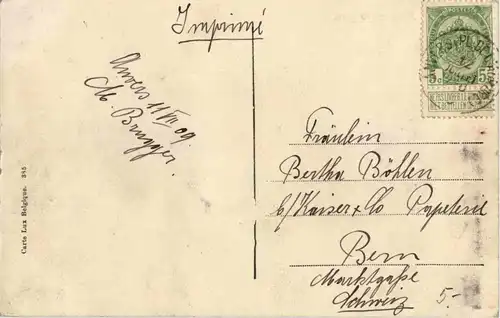 Imprimé
Anvers 11 VII 09.
M. Brugger.
Fräulein
Bertha Böhlen
b/Kaiser & Co Papeterie
Bern
Marktgaße
Schweiz
5.-
Carte Lux Belgique. 385
5c 5c